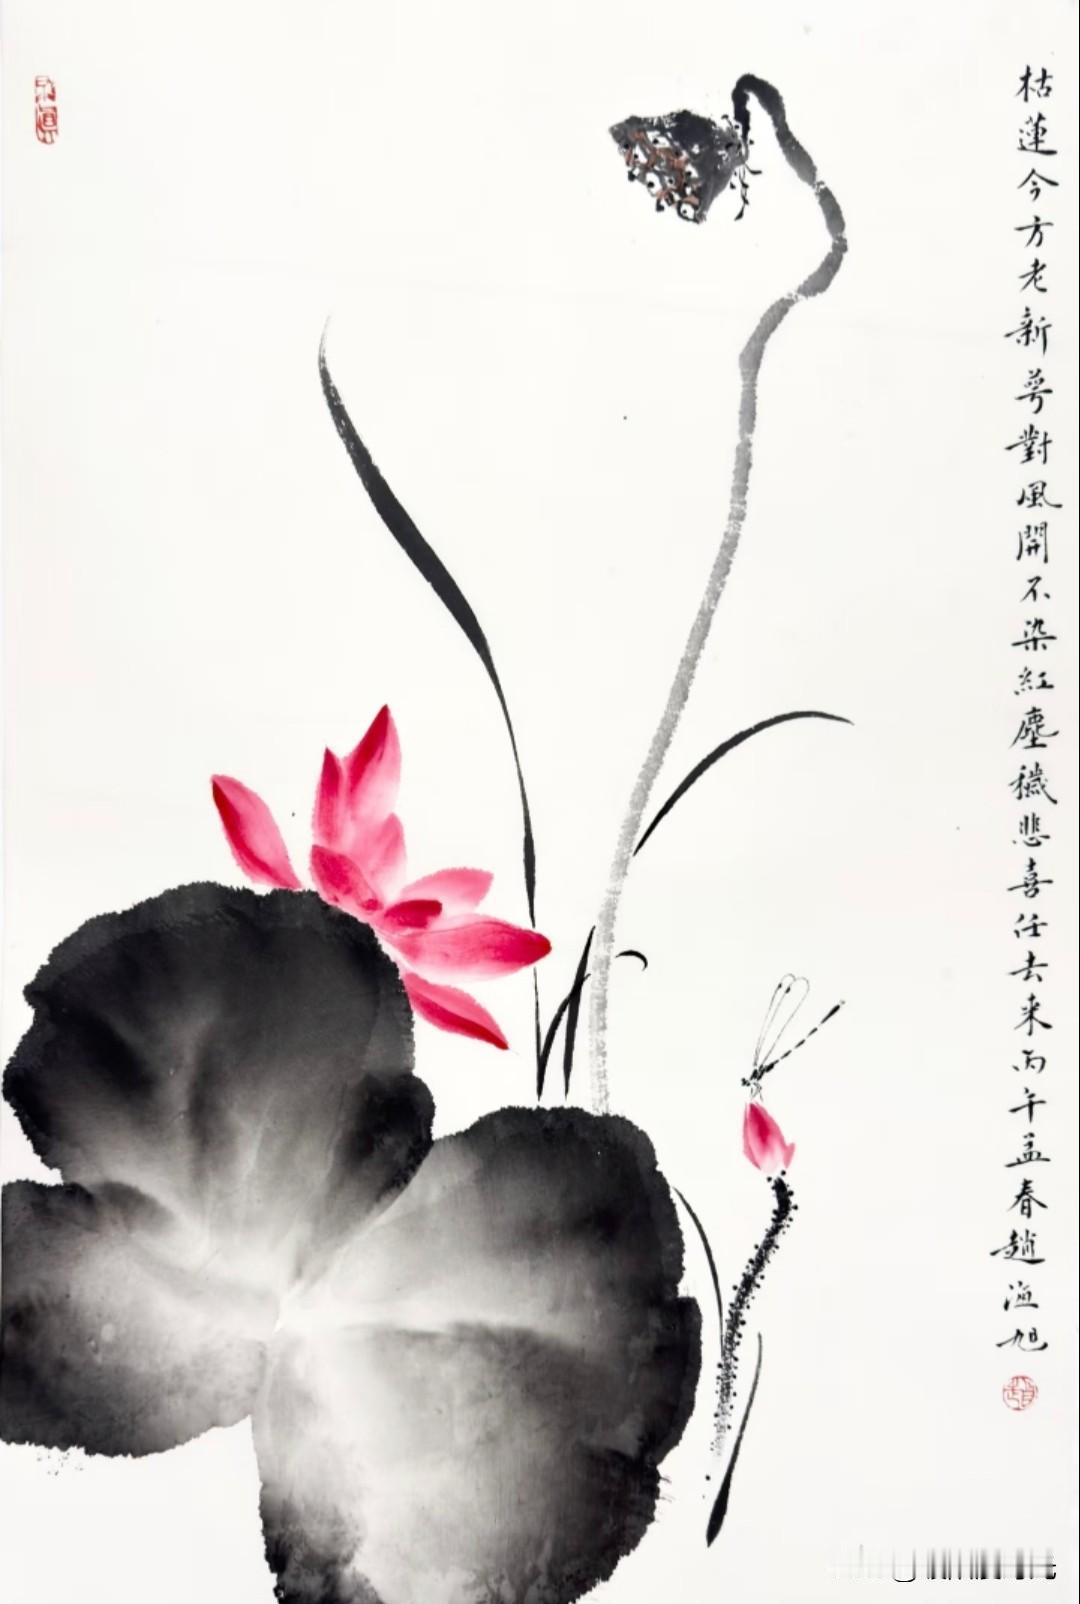 枯蓮今方老新萼對風開不染紅塵穢悲喜任去来丙午孟春趙漁旭